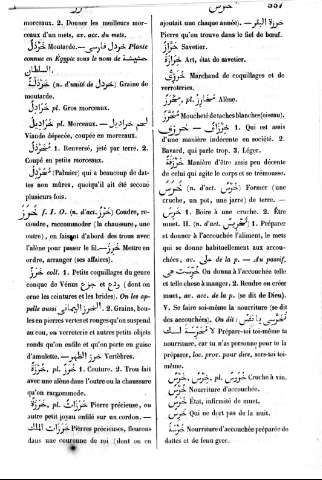 خرس
557
morceaux. 2. Donner les meilleurs mor-
ceaux d'un mets, av. acc. du mets.
خَرْدَلٌ Moutarde.— خردل فارسى Plante
connue en Egypte sous le nom de حشيشة
السلطان.
خَرْدَلَةٌ (n. d'unité de خردل) Graine de
moutarde.
خَرَادِلُ pl. Gros morceaux.
خَرَادِيلُ pl. Morceaux. —
Viande dépecée, coupée en morceaux.
1. Renversé, jeté par terre. 2.
Coupé en petits morceaux.
(Palmier) qui a beaucoup de dat-
tes non mûres, quoiqu'il ait été secoué
plusieurs fois.
خَرَزَ f. I. O. (n. d'act. خَرْز) Coudre, re-
coudre, raccommoder (la chaussure, une
outre), en faisant d'abord des trous avec
l'alène pour passer le fil.— Mettre en
ordre, arranger (ses affaires).
خَرَزٌ coll. 1. Petits coquillages du genre
conque de Vénus ودع et جزع (dont on
orne les ceintures et les brides). On les ap-
pelle aussi الخرز اليمانى. 2. Grains, bou-
les en pierres vertes et rouges qu'on suspend
au cou, ou verreterie et autres petits objets
ronds qu'on enfile et qu'on porte en guise
d'amulette. — خرز الظهر Vertèbres.
خُرْزَةٌ, pl. خُرَزٌ 1. Couture. 2. Trou fait
avec une alène dans l'outre ou la chaussure
qu'on raccommode.
خَرَزَةٌ, pl. خَرَزَاتٌ Pierre précieuse, ou
autre petit joyau enfilé sur un cordon. —
خرزات الملك Pierres précieuses, fleurons
dans une couronne de roi (dont on
ajoutait une chaque année). — خرزة البقر
Pierre qu'on trouve dans le fiel de bœuf.
خَرَّازٌ Savetier.
خِرَازَةٌ Art, état de savetier.
Marchand de coquillages et de
verroteries.
مِخْرَزٌ, pl. مَخَارِزُ Alène.
مُخَرَّزٌ Moucheté de taches blanches (oiseau).
1. Qui est assis
d'une manière indécente en société. 2.
Bavard, qui parle trop. 3. Léger.
Manière d'être assis peu décente
de celui qui agite le corps et se trémousse.
خَرَسَ (n. d'act. خَرْس) Former (une
cruche, un pot, une jarre) de terre. —
خَرِسَ 1. Boire à une cruche. 2. Être
muet. II. (n. d'act. تَخْرِيس) 1. Préparer
et donner à l'accouchée l'aliment, le mets
qui se donne habituellement aux accou-
chées, ac. على de la p. — Au passif,
خرست هى On donna à l'accouchée telle
et telle chose à manger. 2. Rendre ou créer
muet, acc. de la p. (se dit de Dieu).
V. Se faire soi-même la nourriture (se dit
des accouchées). On dit:
Prépare-toi toi-même ta
nourriture, car tu n'as personne pour te la
préparer, loc. prov. pour dire, sers-toi toi-
même.
خَرْسٌ, خِرْسٌ, pl. خُرُوسٌ Cruche à vin.
خُرْسٌ Nourriture d'accouchée.
خَرَسٌ État, infirmité de muet.
خَرِسٌ Qui ne dort pas de la nuit.
خُرْسَةٌ Nourriture d'accouchée préparée de
dattes et de fenu grec.